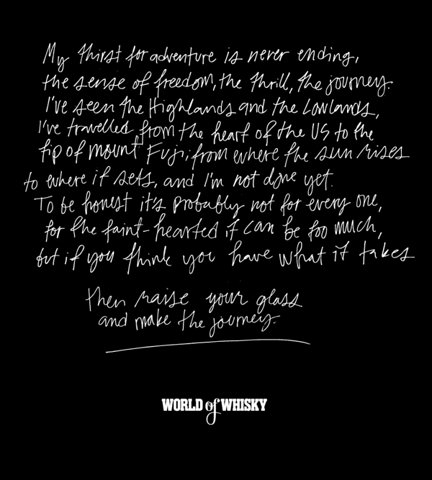 My thirst for adventure is never ending,
the sense of freedom, the thrill, the journey.
I've seen the Highlands and the Lowlands,
I've travelled from the heart of the US to the
tip of mount Fuji, from where the sun rises
to where it sets, and I'm not done yet.
To be honest it's probably not for every one,
for the faint-hearted it can be too much,
but if you think you have what it takes
then raise your glass
and make the journey.
WORLD of WHISKY